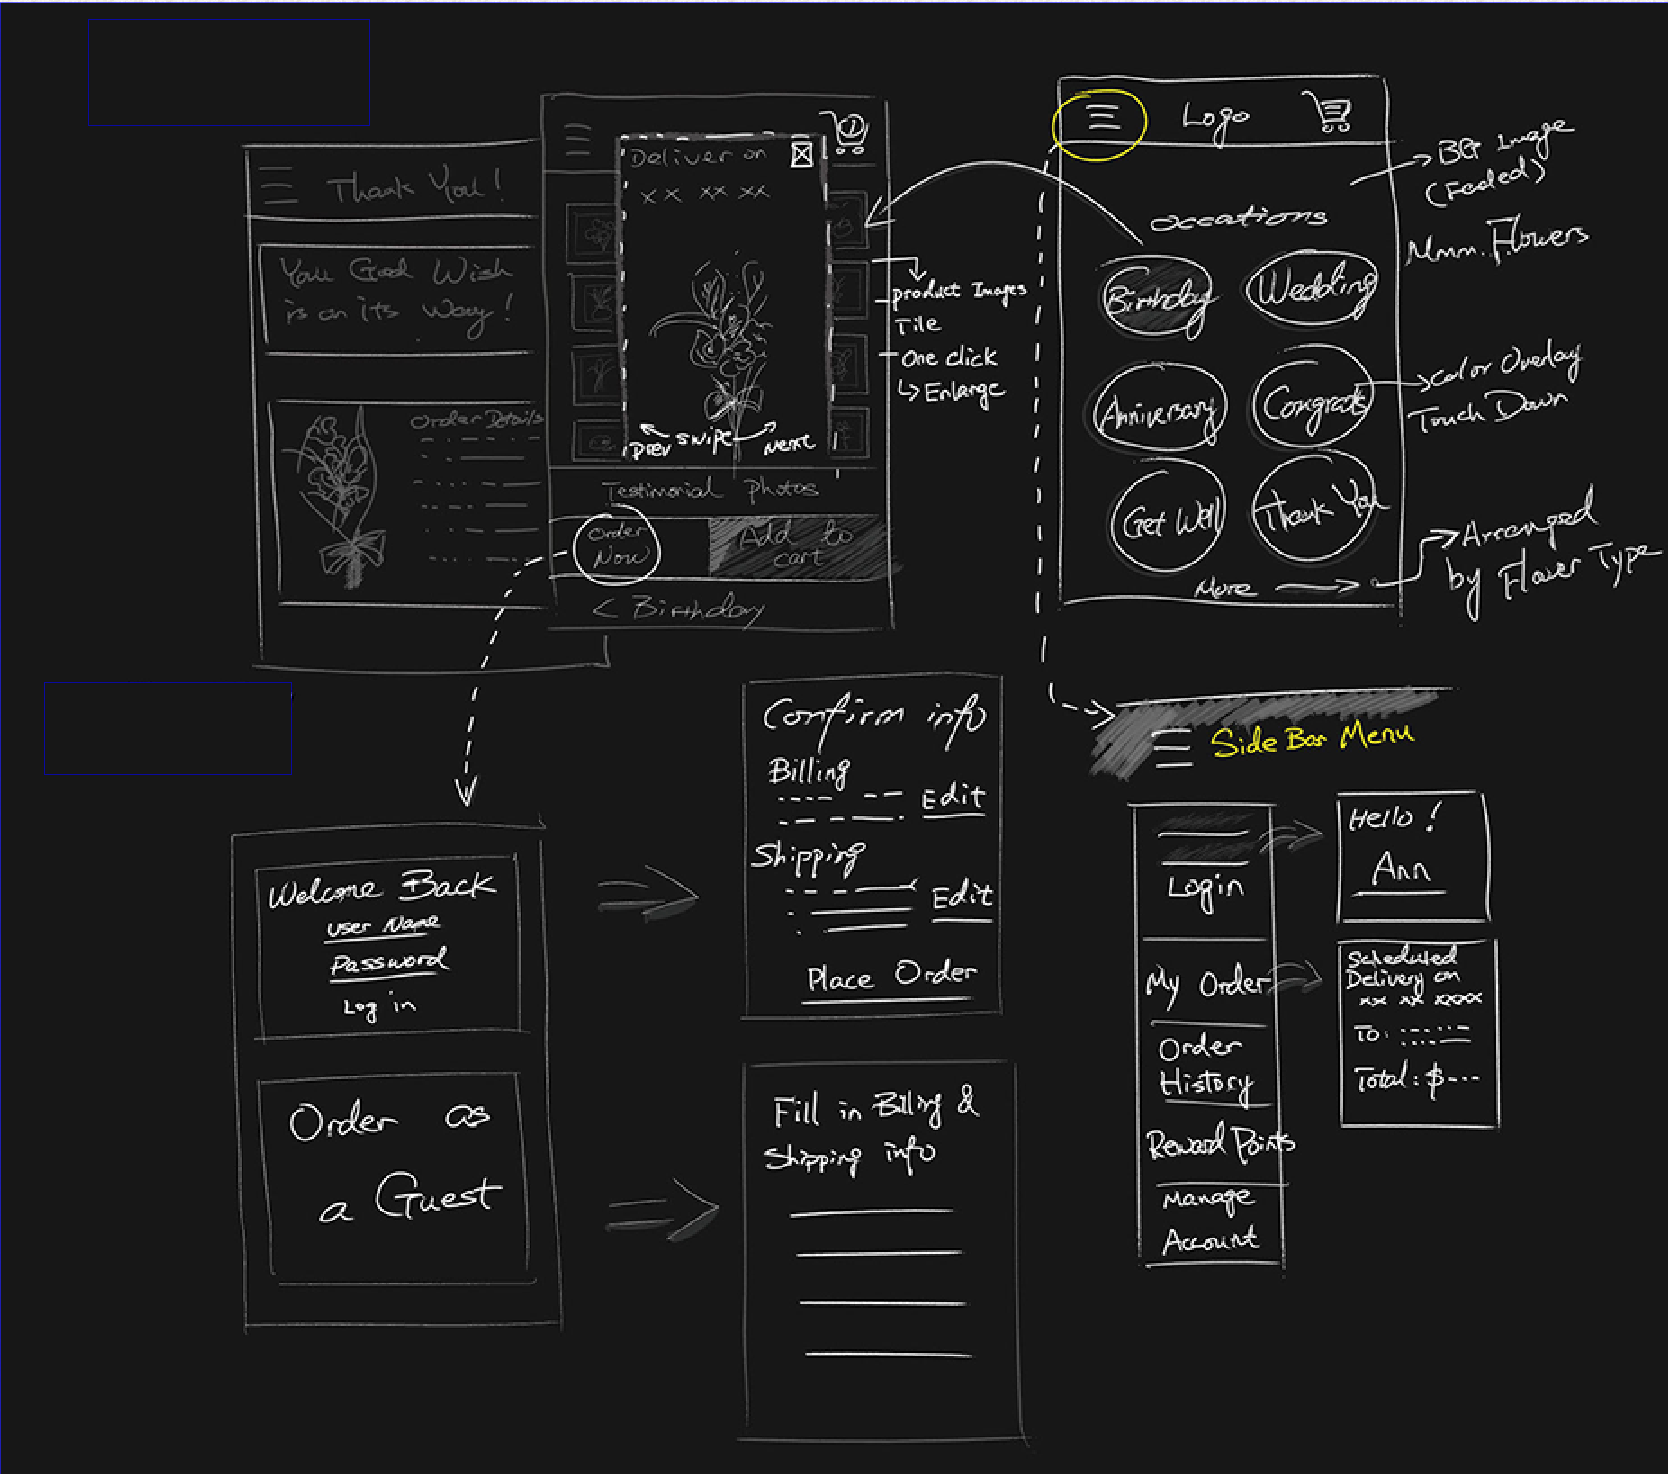 Thank You!
You Good Wish
is on its way!
Order Details
Deliver on
xx xx xx
1
Prev swipe Next
Testimonial Photos
Order
Now
Add to
cart
< Birthday
Product Images
Tile
One click
↳ Enlarge
Logo
occations
Birthday
Wedding
Anniversary
Congrats
Get Well
Thank You
More
BG Image
(Faded)
Mmm. Flowers
Color Overlay
Touch Down
Arranged
by Flower Type
Side Bar Menu
Welcome Back
User Name
Password
Log in
Order as
a Guest
Confirm info
Billing
Edit
Shipping
Edit
Place Order
Fill in Billing &
Shipping info
Login
My Order
Order
History
Reward Points
Manage
Account
Hello!
Ann
Scheduled
Delivery on
xx xx xxxx
To:
Total: $---